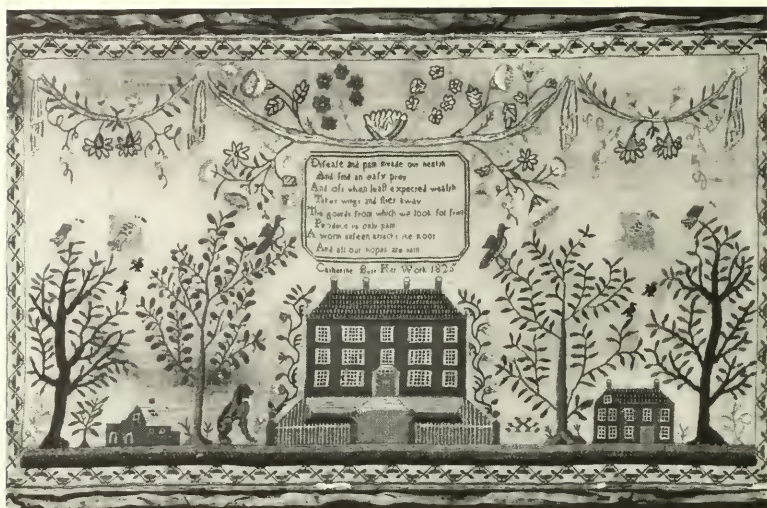 Diſeaſe and pain invade our health
And find an eaſy prey
And oft when leaſt expected wealth
Takes wings and flies away
The gourds from which we look for fruit
Produce us only pain
A worm unſeen attacks the root
And all our hopes are vain
Catherine Her Work 1825